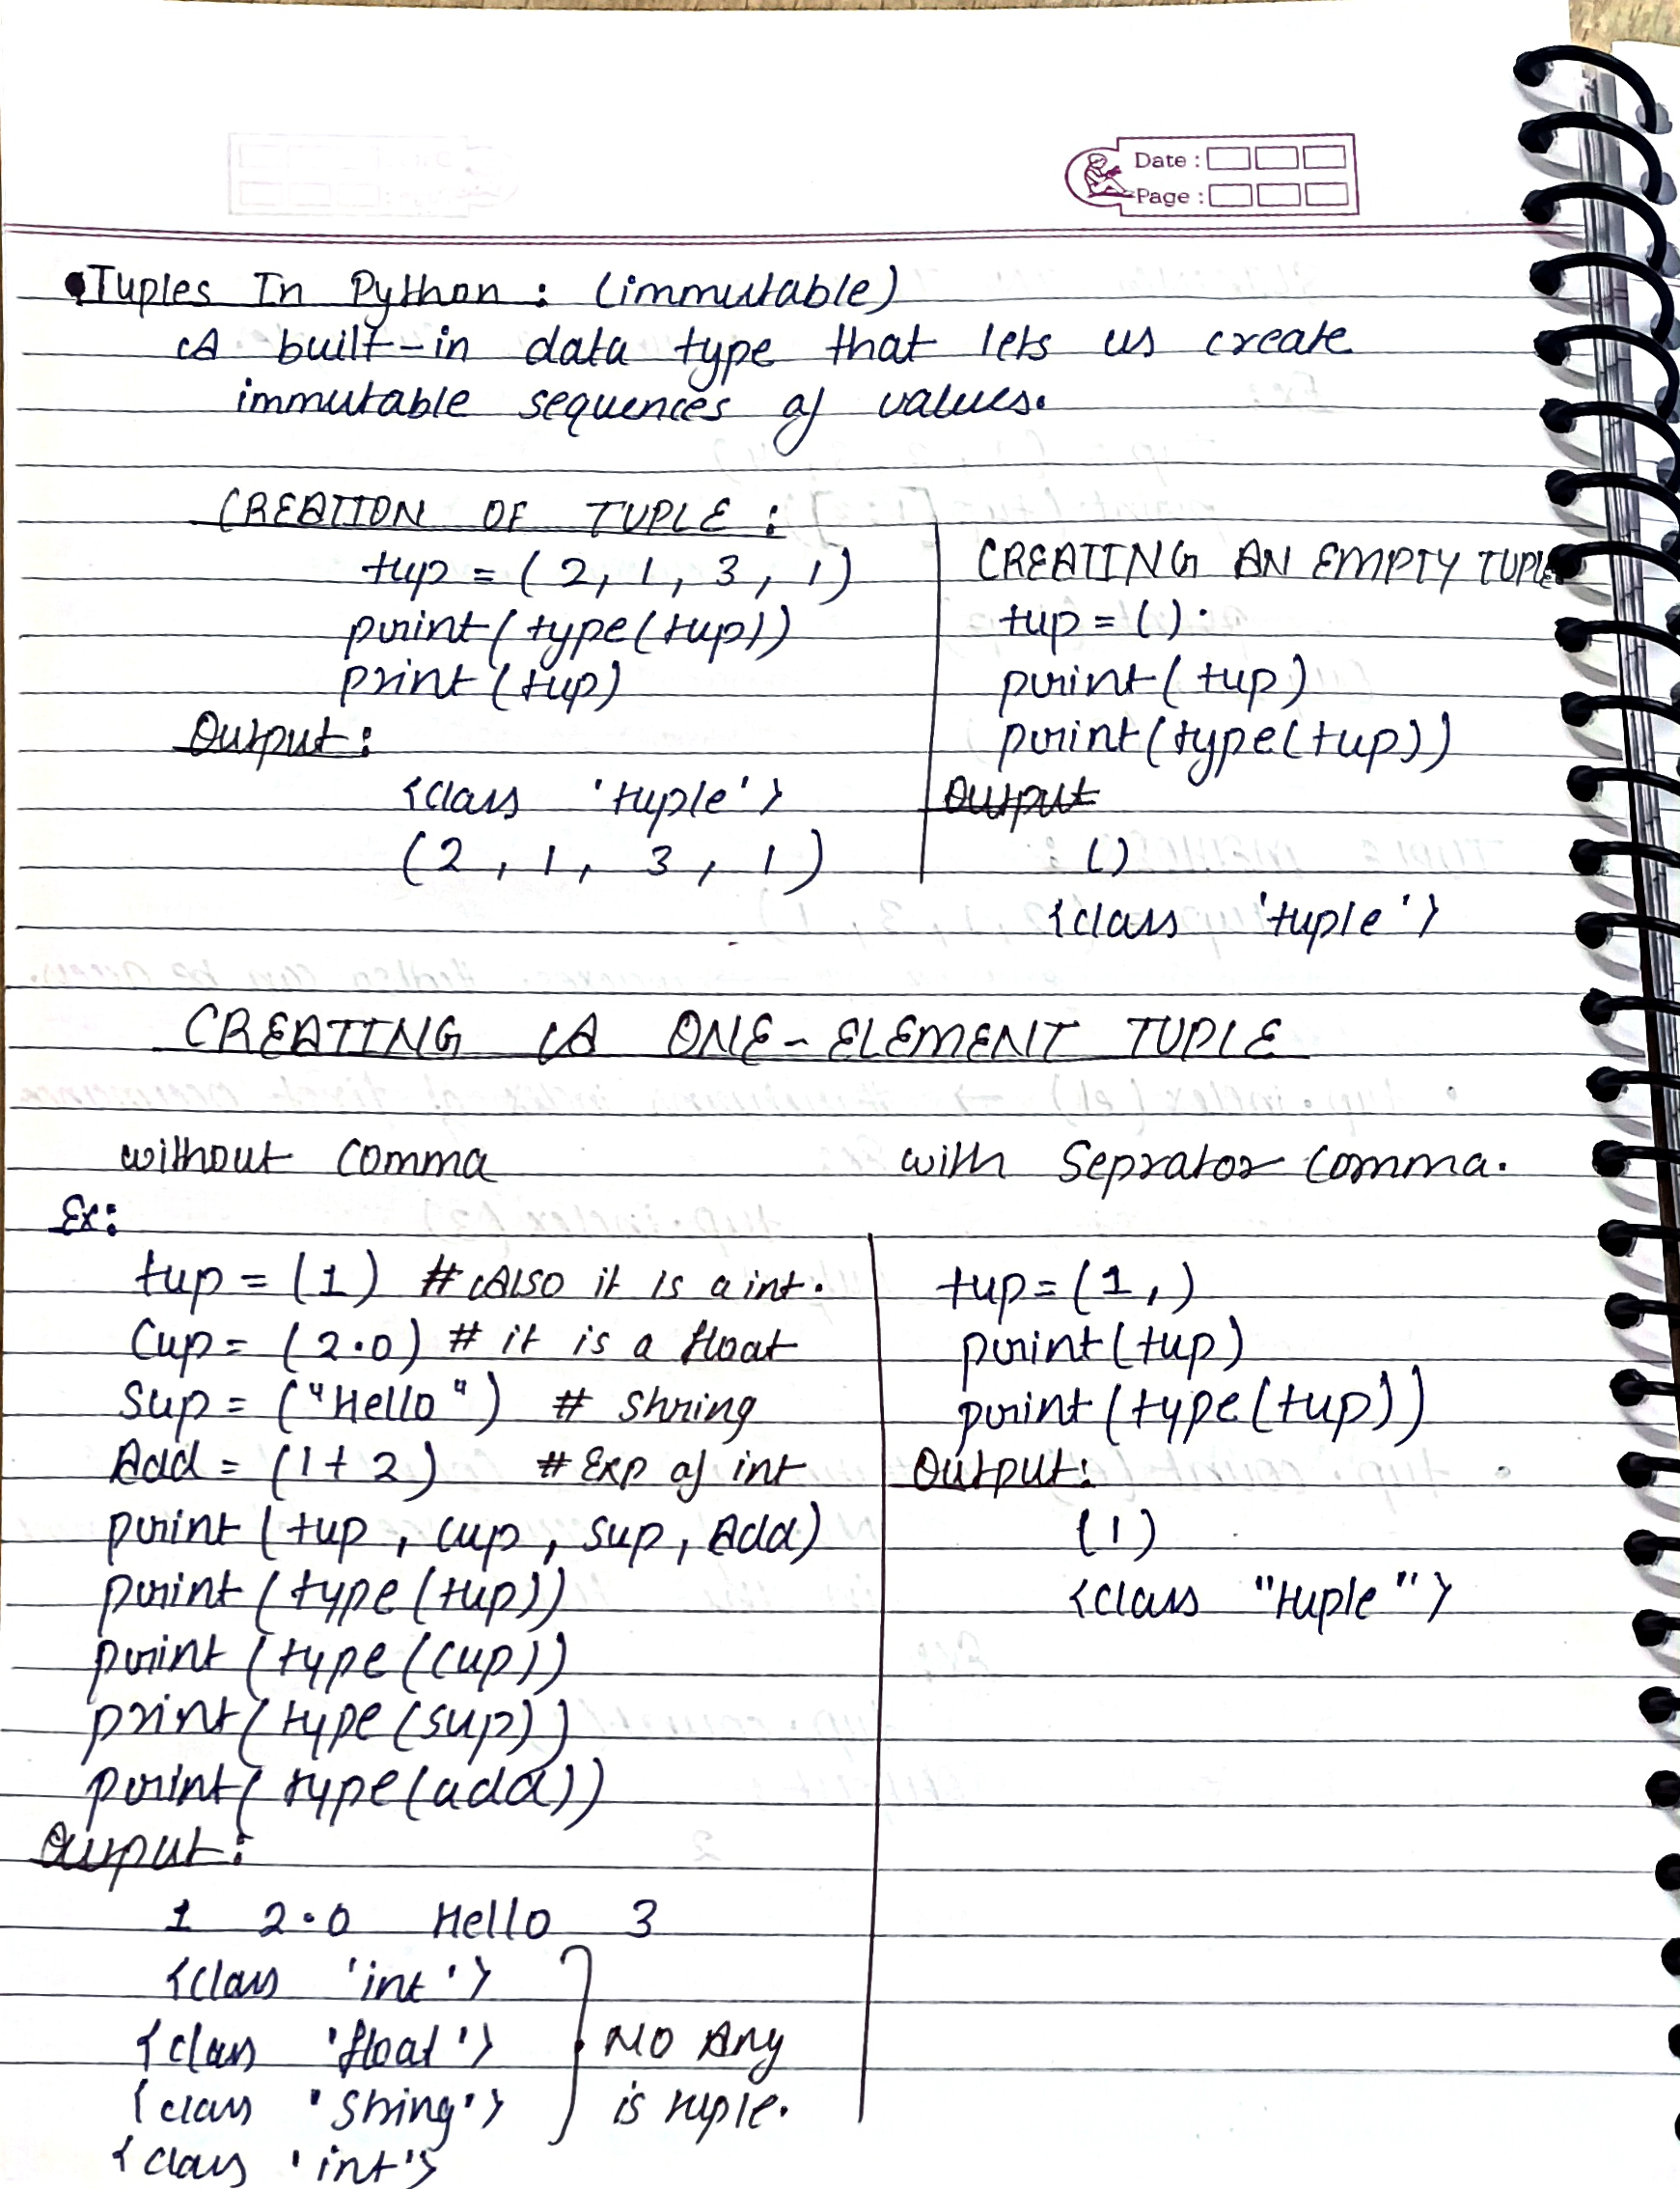 Date :
Page :
Tuples In Python : (immutable)
A built-in data type that lets us create
immutable sequences of values.
CREATION OF TUPLE :
tup = ( 2, 1, 3, 1)
print(type(tup))
print(tup)
Output :
<class 'tuple'>
(2, 1, 3, 1)
CREATING AN EMPTY TUPLE
tup = ()
print(tup)
print(type(tup))
Output
()
<class 'tuple'>
CREATING A ONE-ELEMENT TUPLE
without comma
with Seprator comma.
Ex:
tup = (1) # Also it is a int.
Cup = (2.0) # it is a float
Sup = ("Hello") # String
Add = (1+2) # Exp of int
print (tup, cup, sup, Add)
print (type(tup))
print (type(cup))
print (type(sup))
print (type(add))
Output :
1 2.0 Hello 3
<class 'int'>
<class 'float'>
<class 'String'>
<class 'int'>
NO Any
is tuple.
tup=(1,)
print(tup)
print(type(tup))
Output:
(1)
<class "tuple">